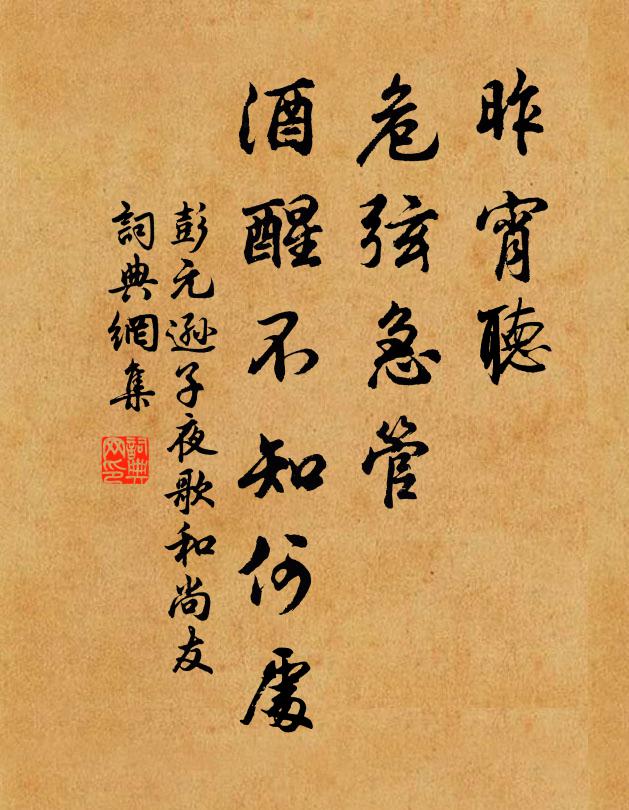 昨宵聽
危弦急管
酒醒不知何處
彭元遜子夜歌和尚友
詞典網集
詞典
网印